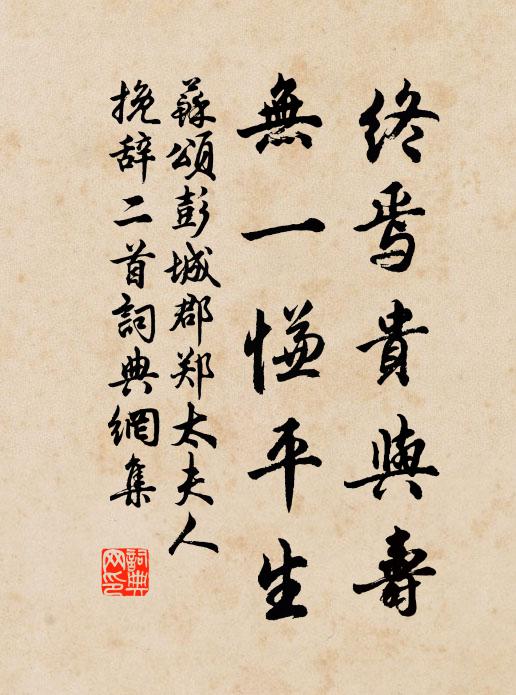 終焉貴與壽
無一慊平生
蘇頌彭城郡郑太夫人
挽辞二首詞典網集
詞典
网印